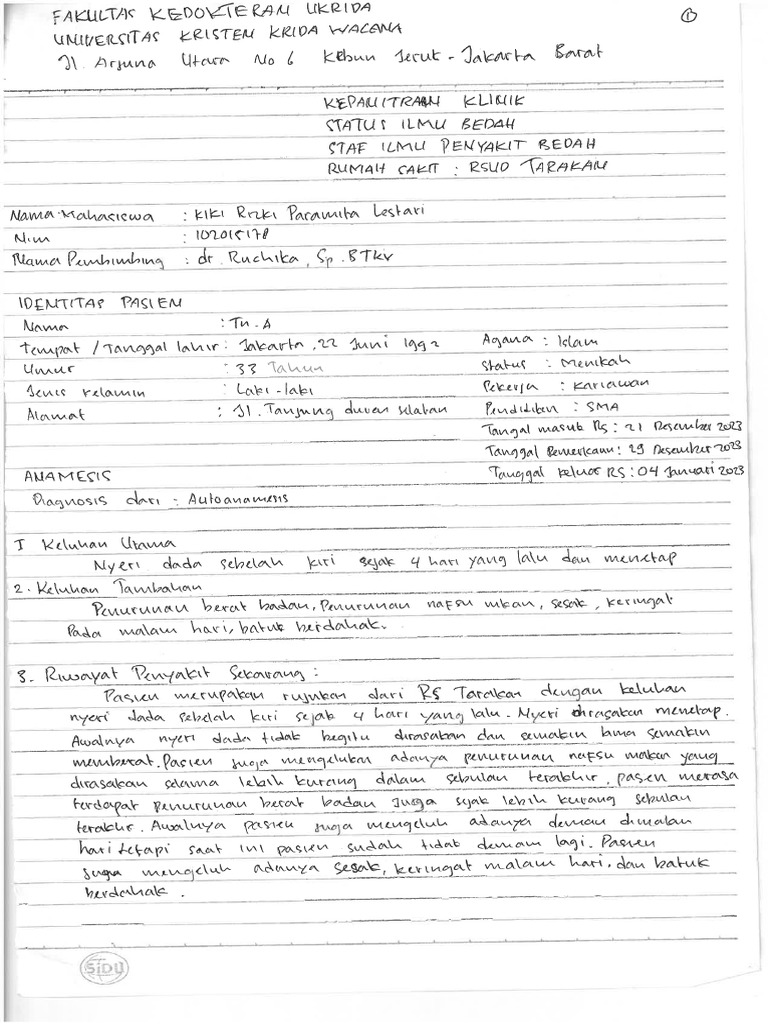 ①
FAKULTAS KEDOKTERAN UKRIDA
UNIVERSITAS KRISTEN KRIDA WACANA
Jl. Arjuna Utara No 6 Kebun Jeruk - Jakarta Barat
KEPANITRAAN KLINIK
STATUS ILMU BEDAH
STAF ILMU PENYAKIT BEDAH
RUMAH SAKIT : RSUD TARAKAN
Nama Mahasiswa : KIKI Rizki Paramita Lestari
Nim : 102015178
Nama Pembimbing : dr. Ruchika, Sp.BTKV
IDENTITAS PASIEN
Nama : Tn. A
Tempat / Tanggal lahir : Jakarta, 22 Juni 1992 Agama : Islam
Umur : 33 Tahun Status : Menikah
Jenis kelamin : Laki-laki Pekerja : Kariawan
Alamat : Jl. Tanjung duren selatan Pendidikan : SMA
Tanggal masuk RS : 21 Desember 2023
Tanggal Pemeriksaan : 29 Desember 2023
Tanggal keluar RS : 04 Januari 2023
ANAMESIS
Diagnosis dari : Autoanamesis
I Keluhan Utama
Nyeri dada sebelah kiri sejak 4 hari yang lalu dan menetap
2. Keluhan Tambahan
Penurunan berat badan, Penurunan nafsu mkan, sesak, keringat
Pada malam hari, batuk berdahak.
3. Riwayat Penyakit Sekarang :
Pasien merupakan rujukan dari RS Tarakan dengan keluhan
nyeri dada sebelah kiri sejak 4 hari yang lalu. Nyeri dirasakan menetap.
Awalnya nyeri dada tidak begitu dirasakan dan semakin lama semakin
memberat. Pasien juga mengeluhkan adanya penurunan nafsu makan yang
dirasakan selama lebih kurang dalam sebulan terakhir, pasien merasa
terdapat penurunan berat badan Juga sejak lebih kurang sebulan
terakhir. Awalnya pasien juga mengeluh adanya demam dimalam
hari tetapi saat ini pasien sudah tidak demam lagi. Pasien
juga mengeluh adanya sesak, keringat malam hari, dan batuk
berdahak.
SIDU